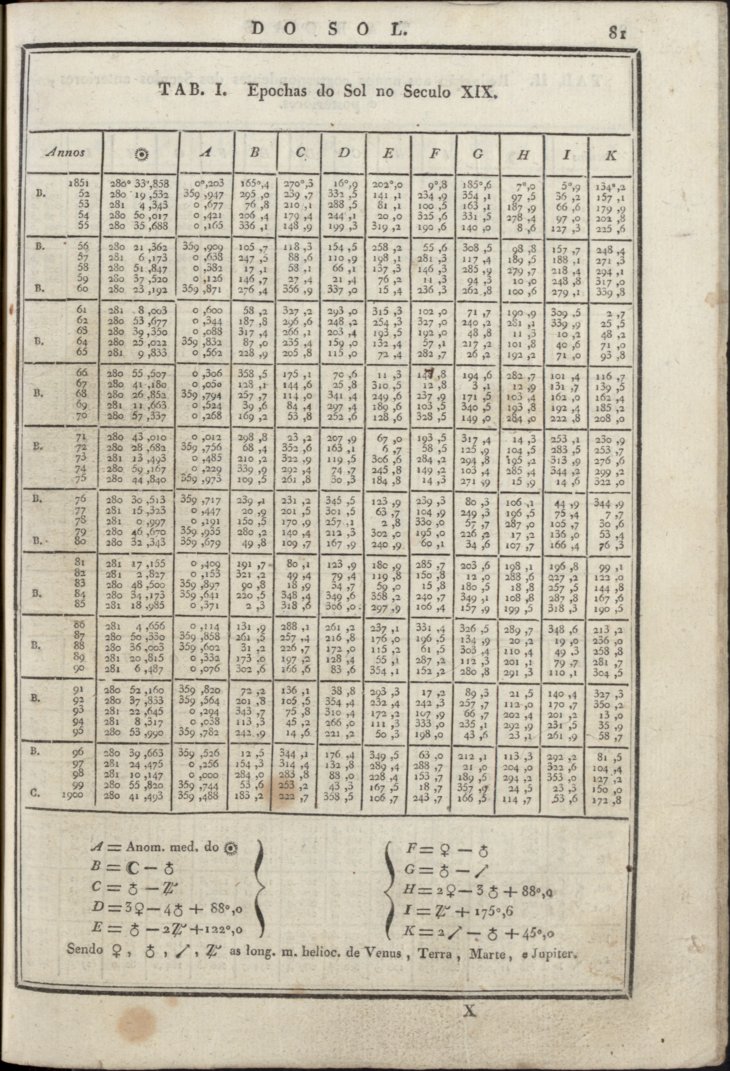 DO SOL.
81
TAB. I. Epochas do Sol no Seculo XIX.
Annos ☉ A B C D E F G H I K
1851 280° 33',858 0°,203 165°,4 270°,3 16°,9 202°,0 9°,8 185°,6 7°,0 5°,9 134°,2
B. 52 280 19 ,532 359 ,947 295 ,0 239 ,7 332 ,5 141 ,1 234 ,9 354 ,1 97 ,5 36 ,2 157 ,1
53 281 4 ,343 0 ,677 76 ,8 210 ,1 288 ,5 81 ,1 100 ,5 163 ,1 187 ,9 66 ,6 179 ,9
54 280 50 ,017 0 ,421 206 ,4 179 ,4 244 ,1 20 ,0 325 ,6 331 ,5 278 ,4 97 ,0 202 ,8
55 280 35 ,688 0 ,165 336 ,1 148 ,9 199 ,3 319 ,2 190 ,6 140 ,0 8 ,6 127 ,3 225 ,6
B. 56 280 21 ,362 359 ,909 105 ,7 118 ,3 154 ,5 258 ,2 55 ,6 308 ,5 98 ,8 157 ,7 248 ,4
57 281 6 ,173 0 ,638 247 ,5 88 ,6 110 ,9 198 ,1 281 ,3 117 ,4 189 ,5 188 ,1 271 ,3
58 280 51 ,847 0 ,382 17 ,1 58 ,1 66 ,1 137 ,3 146 ,3 285 ,9 279 ,7 218 ,4 294 ,1
59 280 37 ,520 0 ,126 146 ,7 27 ,4 21 ,4 76 ,2 11 ,3 94 ,3 10 ,0 248 ,8 317 ,0
B. 60 280 23 ,192 359 ,871 276 ,4 356 ,9 337 ,0 15 ,4 236 ,3 262 ,8 100 ,6 279 ,1 339 ,8
61 281 8 ,003 0 ,600 58 ,2 327 ,2 293 ,0 315 ,3 102 ,0 71 ,7 190 ,9 309 ,5 2 ,7
62 280 53 ,677 0 ,344 187 ,8 296 ,6 248 ,2 254 ,3 327 ,0 240 ,2 281 ,1 339 ,9 25 ,5
63 280 39 ,350 0 ,088 317 ,4 266 ,1 203 ,4 193 ,5 192 ,0 48 ,8 11 ,3 10 ,2 48 ,2
B. 64 280 25 ,022 359 ,832 87 ,0 235 ,4 159 ,0 132 ,4 57 ,1 217 ,2 101 ,8 40 ,6 71 ,0
65 281 9 ,833 0 ,562 228 ,9 205 ,8 115 ,0 72 ,4 282 ,7 26 ,2 192 ,2 71 ,0 93 ,8
66 280 55 ,507 0 ,306 358 ,5 175 ,1 70 ,6 11 ,3 ,8 194 ,6 282 ,7 101 ,4 116 ,7
67 280 41 ,180 0 ,050 128 ,1 144 ,6 25 ,8 310 ,5 12 ,8 3 ,1 12 ,9 131 ,7 139 ,5
B. 68 280 26 ,852 359 ,794 257 ,7 114 ,0 341 ,4 249 ,6 237 ,9 171 ,5 103 ,4 162 ,0 162 ,4
69 281 11 ,663 0 ,524 39 ,6 84 ,4 297 ,4 189 ,6 103 ,5 340 ,5 193 ,8 192 ,4 185 ,2
70 280 57 ,337 0 ,268 169 ,2 53 ,8 252 ,6 128 ,6 328 ,5 149 ,0 284 ,0 222 ,8 208 ,0
71 280 43 ,010 0 ,012 298 ,8 23 ,2 207 ,9 67 ,0 193 ,5 317 ,4 14 ,3 253 ,1 230 ,9
B. 72 280 28 ,682 359 ,756 68 ,4 352 ,6 163 ,1 6 ,7 58 ,5 125 ,9 104 ,5 283 ,5 253 ,7
73 281 13 ,493 0 ,485 210 ,2 322 ,9 119 ,5 306 ,6 284 ,2 294 ,8 195 ,2 313 ,9 276 ,6
74 280 59 ,167 0 ,229 339 ,9 292 ,4 74 ,7 245 ,8 149 ,2 103 ,4 285 ,4 344 ,2 299 ,2
75 280 44 ,840 359 ,973 109 ,5 261 ,8 30 ,3 184 ,8 14 ,3 271 ,9 15 ,9 14 ,6 322 ,0
B. 76 280 30 ,513 359 ,717 239 ,1 231 ,2 345 ,5 123 ,9 239 ,3 80 ,3 106 ,1 44 ,9 344 ,9
77 281 15 ,323 0 ,447 20 ,9 201 ,5 301 ,5 63 ,7 104 ,9 249 ,3 196 ,5 75 ,4 7 ,7
78 281 0 ,997 0 ,191 150 ,5 170 ,9 257 ,1 2 ,8 330 ,0 57 ,7 287 ,0 105 ,7 30 ,6
79 280 46 ,670 359 ,935 280 ,2 140 ,4 212 ,3 302 ,0 195 ,0 226 ,2 17 ,2 136 ,0 53 ,4
B. 80 280 32 ,343 359 ,679 49 ,8 109 ,7 167 ,9 240 ,9 60 ,1 34 ,6 107 ,7 166 ,4 76 ,3
81 281 17 ,155 0 ,409 191 ,7 80 ,1 123 ,9 180 ,9 285 ,7 203 ,6 198 ,1 196 ,8 99 ,1
82 281 2 ,827 0 ,153 321 ,2 49 ,4 79 ,4 119 ,8 150 ,8 12 ,0 288 ,6 227 ,2 122 ,0
83 280 48 ,500 359 ,897 90 ,8 18 ,9 34 ,7 59 ,0 15 ,8 180 ,5 18 ,8 257 ,5 144 ,8
B. 84 280 34 ,173 359 ,641 220 ,5 348 ,4 349 ,6 358 ,2 240 ,7 349 ,1 108 ,8 287 ,8 167 ,6
85 281 18 ,985 0 ,371 2 ,3 318 ,6 306 ,0 297 ,9 106 ,4 157 ,9 199 ,5 318 ,3 190 ,5
86 281 4 ,656 0 ,114 131 ,9 288 ,1 261 ,2 237 ,1 331 ,4 326 ,5 289 ,7 348 ,6 213 ,2
87 280 50 ,330 359 ,858 261 ,5 257 ,4 216 ,8 176 ,0 196 ,5 134 ,9 20 ,2 19 ,0 236 ,0
B. 88 280 36 ,003 359 ,602 31 ,2 226 ,7 172 ,0 115 ,2 61 ,5 303 ,4 110 ,4 49 ,3 258 ,8
89 281 20 ,815 0 ,332 173 ,0 197 ,2 128 ,4 55 ,1 287 ,2 112 ,3 201 ,1 79 ,7 281 ,7
90 281 6 ,487 0 ,076 302 ,6 166 ,6 83 ,6 354 ,1 152 ,2 280 ,8 291 ,3 110 ,1 304 ,5
91 280 52 ,160 359 ,820 72 ,2 136 ,1 38 ,8 293 ,3 17 ,2 89 ,3 21 ,5 140 ,4 327 ,3
B. 92 280 37 ,833 359 ,564 201 ,8 105 ,5 354 ,4 232 ,4 242 ,3 257 ,7 112 ,0 170 ,7 350 ,2
93 281 22 ,645 0 ,294 343 ,7 75 ,8 310 ,4 172 ,2 107 ,9 66 ,7 202 ,4 201 ,2 13 ,0
94 281 8 ,317 0 ,038 113 ,3 45 ,2 266 ,0 111 ,3 333 ,0 235 ,1 292 ,9 231 ,5 35 ,9
95 280 53 ,990 359 ,782 242 ,9 14 ,6 221 ,2 50 ,3 198 ,0 43 ,6 23 ,1 261 ,9 58 ,7
B. 96 280 39 ,663 359 ,526 12 ,5 344 ,1 176 ,4 349 ,5 63 ,0 212 ,1 113 ,3 292 ,2 81 ,5
97 281 24 ,475 0 ,256 154 ,3 314 ,4 132 ,8 289 ,4 288 ,7 21 ,0 204 ,0 322 ,6 104 ,4
98 281 10 ,147 0 ,000 284 ,0 283 ,8 88 ,0 228 ,4 153 ,7 189 ,5 294 ,2 353 ,0 127 ,2
99 280 55 ,820 359 ,744 53 ,6 253 ,2 43 ,3 167 ,5 18 ,7 357 ,9 24 ,5 23 ,3 150 ,0
C. 1900 280 41 ,493 359 ,488 183 ,2 222 ,7 358 ,5 106 ,7 243 ,7 166 ,5 114 ,7 53 ,6 172 ,8
A = Anom. med. do ☉
B = ☾ — ♁
C = ♁ — ♃
D = 3♀ — 4♁ + 88°,0
E = ♁ — 2♃ + 122°,0
F = ♀ — ♁
G = ♁ — ♂
H = 2♀ — 3♁ + 88°,0
I = ♃ + 175°,6
K = 2♂ — ♁ + 45°,0
Sendo ♀, ♁, ♂, ♃ as long. m. helioc. de Venus, Terra, Marte, e Jupiter.
X